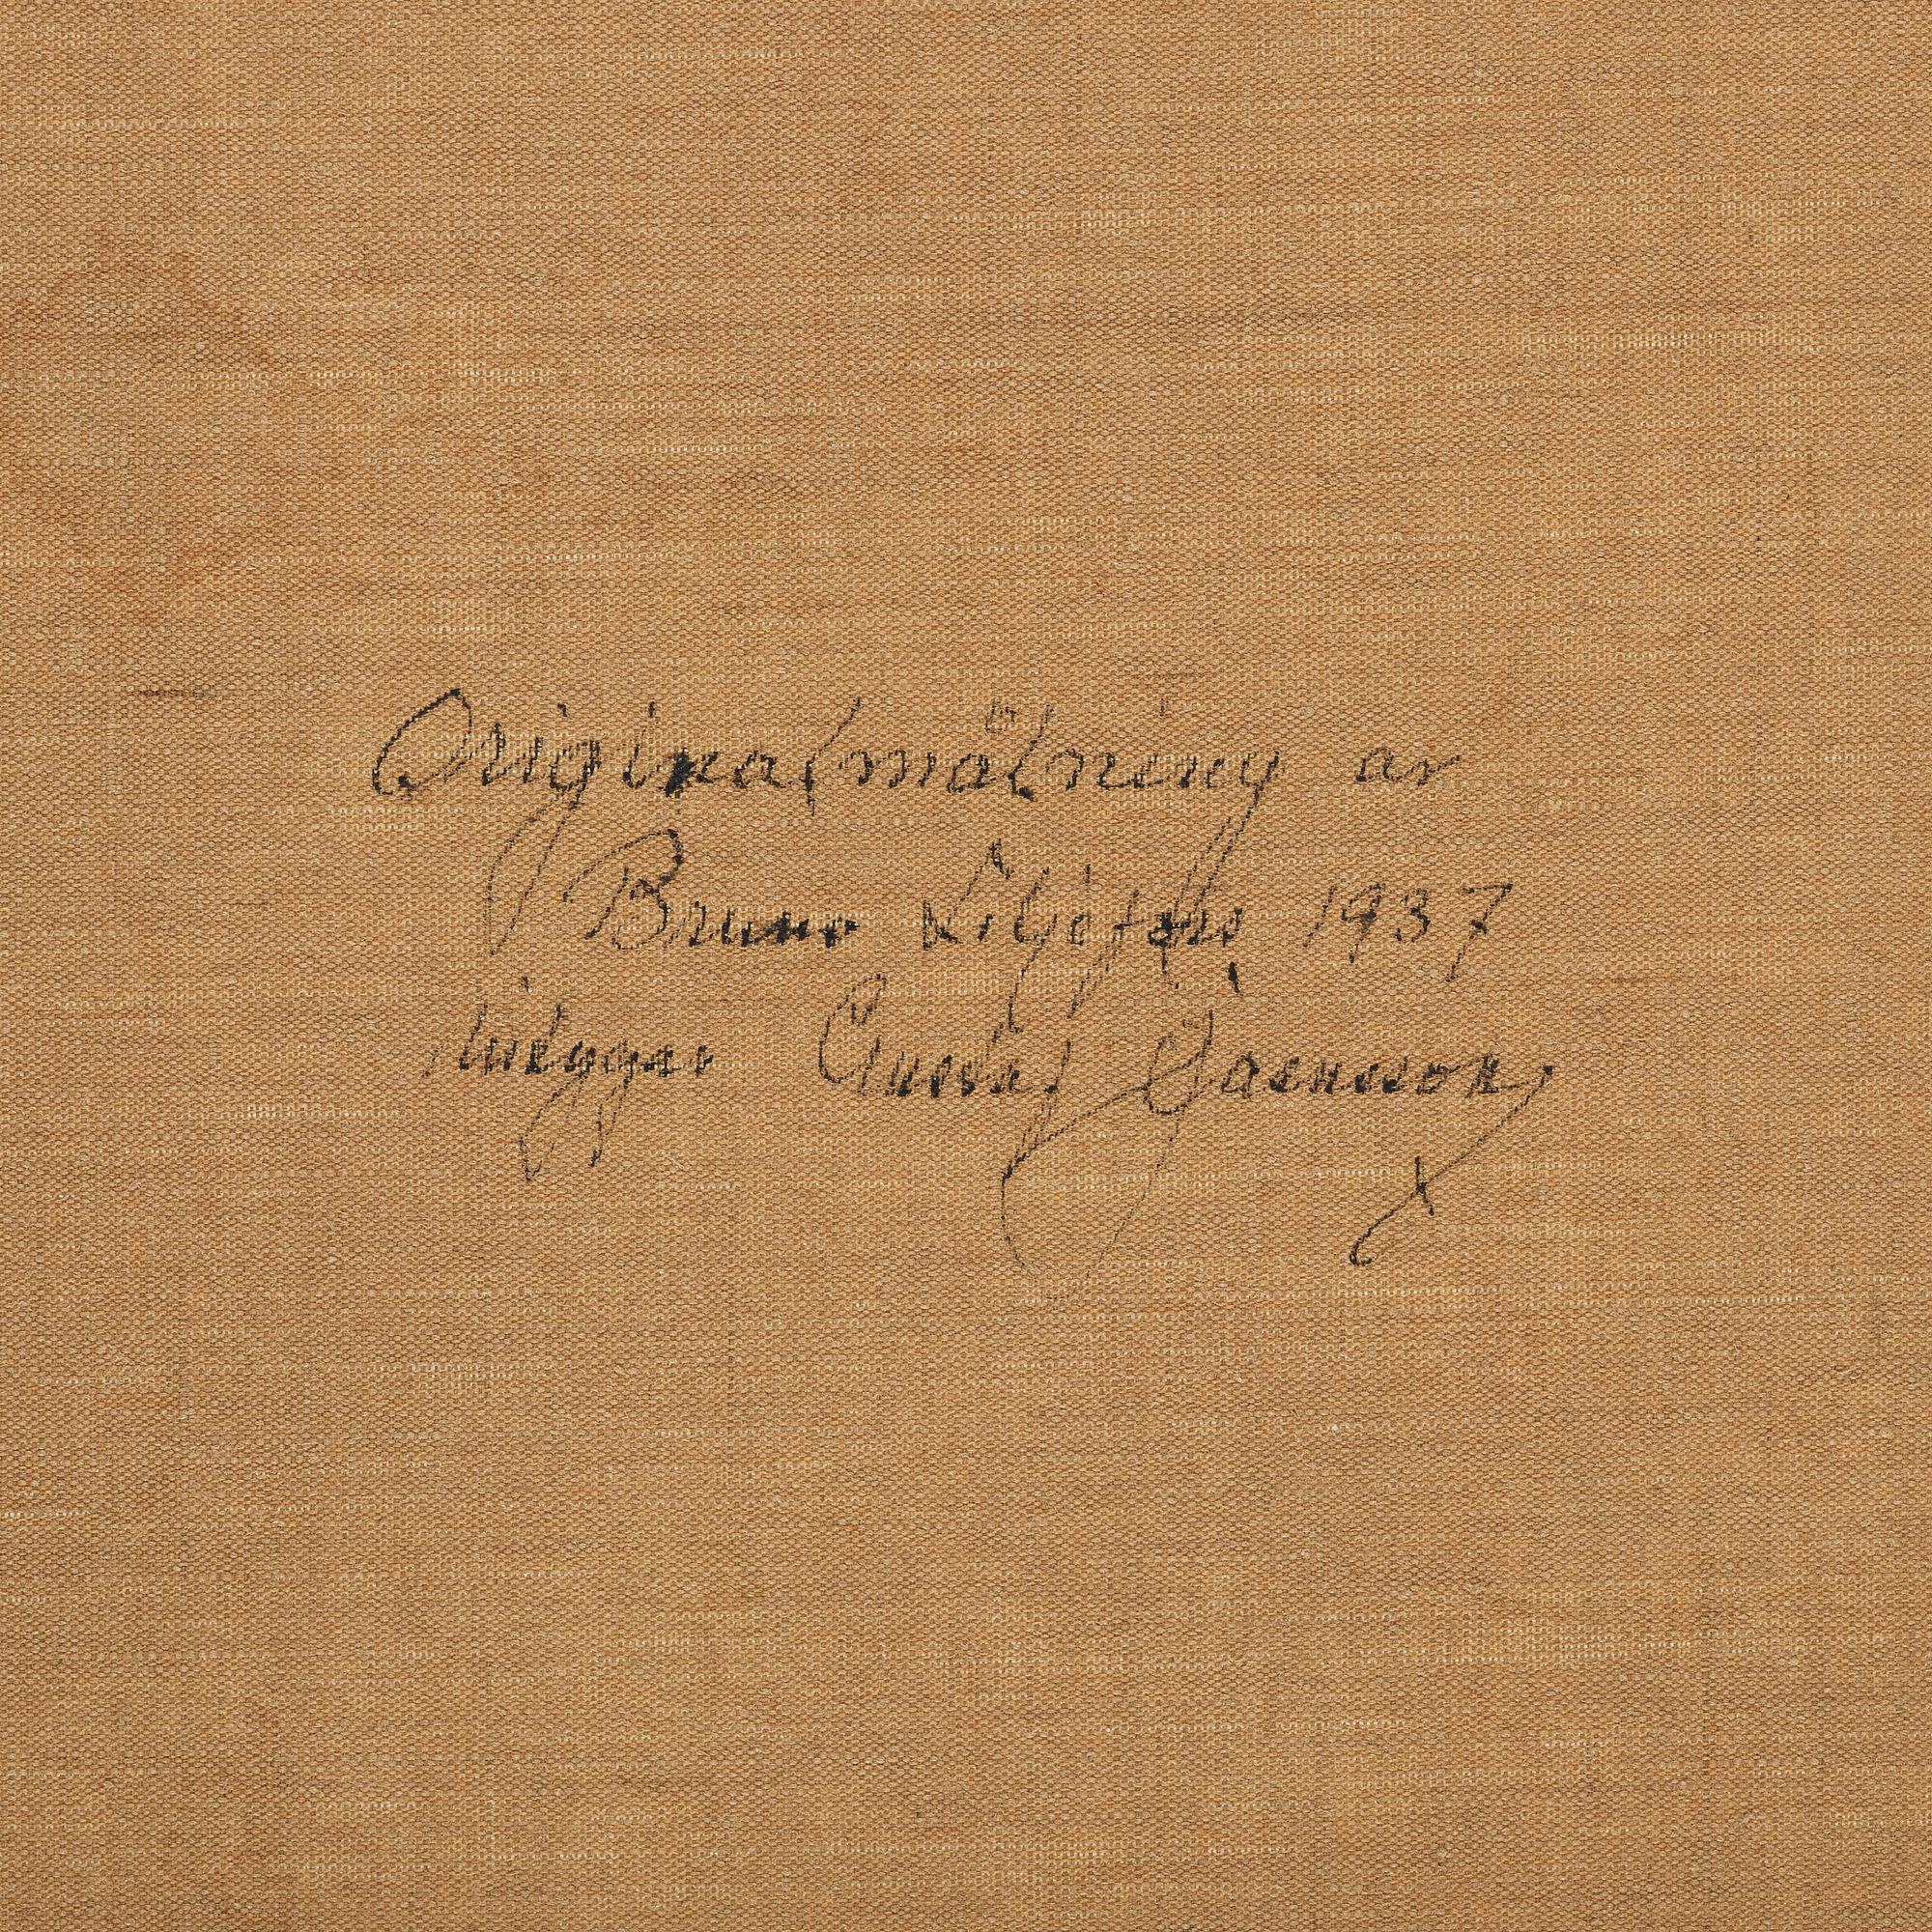 Originalmålning av
Bruno Liljefors 1937
intygar Gustaf Jaensson